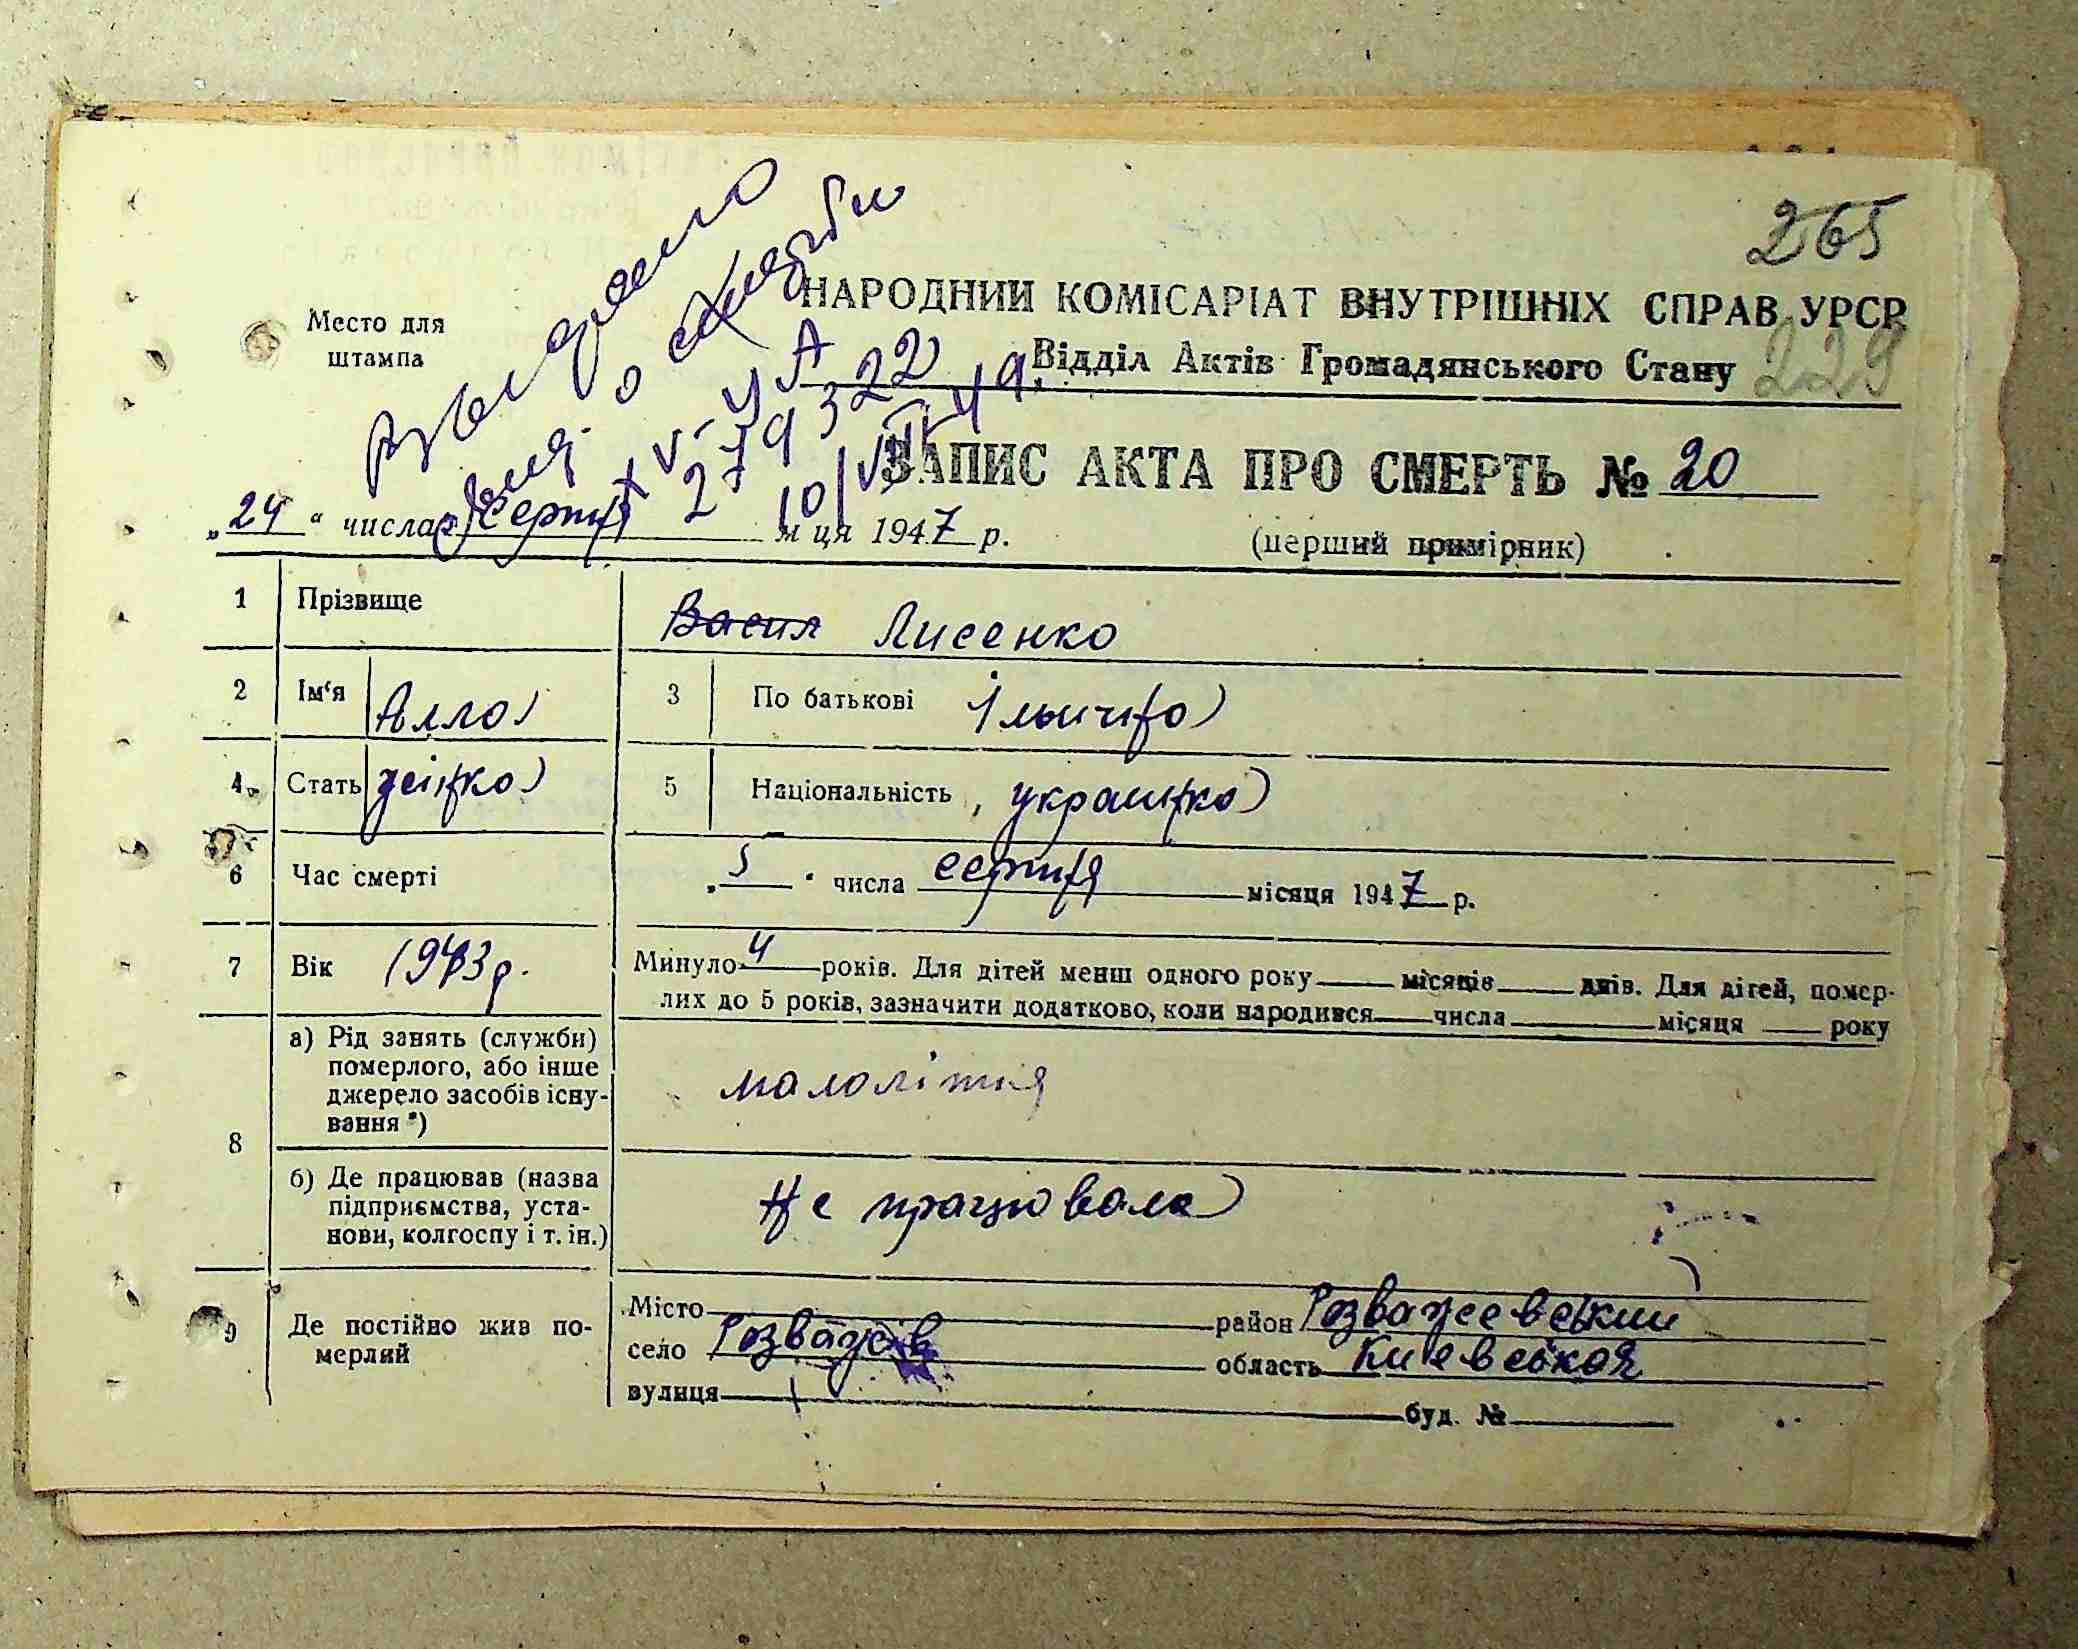 265
Место для
штампа
НАРОДНИЙ КОМІСАРІАТ ВНУТРІШНІХ СПРАВ УРСР
Відділ Актів Громадянського Стану
229
о смерти
V-УА
279322
10/VIII-49.
ЗАПИС АКТА ПРО СМЕРТЬ № 20
„24“ числа серпня м ця 1947 р.
(перший примірник)
1 Прізвище Васил Лисенко
2 Ім'я Алла 3 По батькові Ільінічна
4 Стать жінка 5 Національність українка
6 Час смерті „5“ числа серпня місяця 1947 р.
7 Вік 1943 р. Минуло 4 років. Для дітей менш одного року місяців днів. Для дітей, помер-
лих до 5 років, зазначити додатково, коли народився числа місяця року
8 а) Рід занять (служби)
померлого, або інше
джерело засобів існу-
вання *)
малолітня
б) Де працював (назва
підприємства, уста-
нови, колгоспу і т. ін.)
Не працювала
9 Де постійно жив по-
мерлий
Місто район Розважевський
село Розважів область Киевськоя
вулиця буд. №